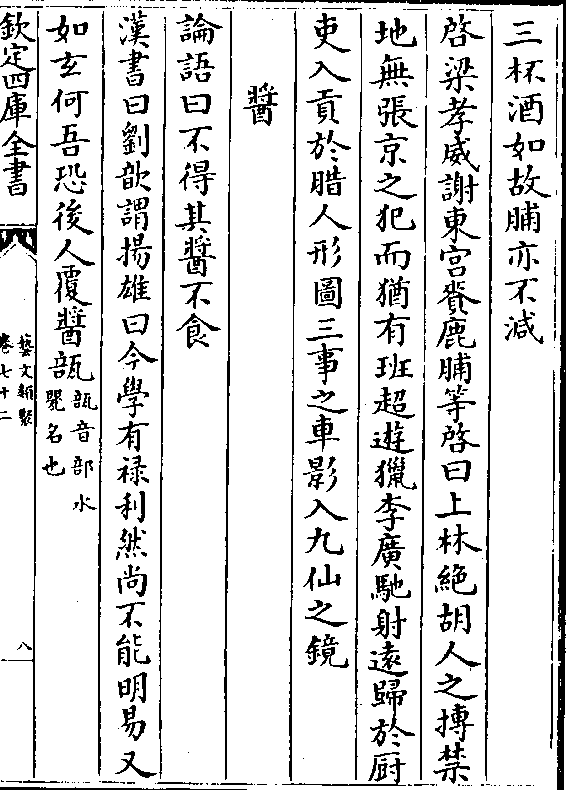 三杯酒如故脯亦不減
啓梁孝威謝東宮賚鹿脯等啓曰上林絶胡人之搏禁
地無張京之犯而猶有班超遊獵李廣馳射遠歸於厨
吏入貢於腊人形圖三事之車影入九仙之鏡
醬
論語曰不得其醬不食
漢書曰劉歆謂揚雄曰今學有禄利然尚不能明易又
如玄何吾恐後人覆醬瓿瓿音部水
甖名也
欽定四庫全書
藝文類聚
卷七十二
八